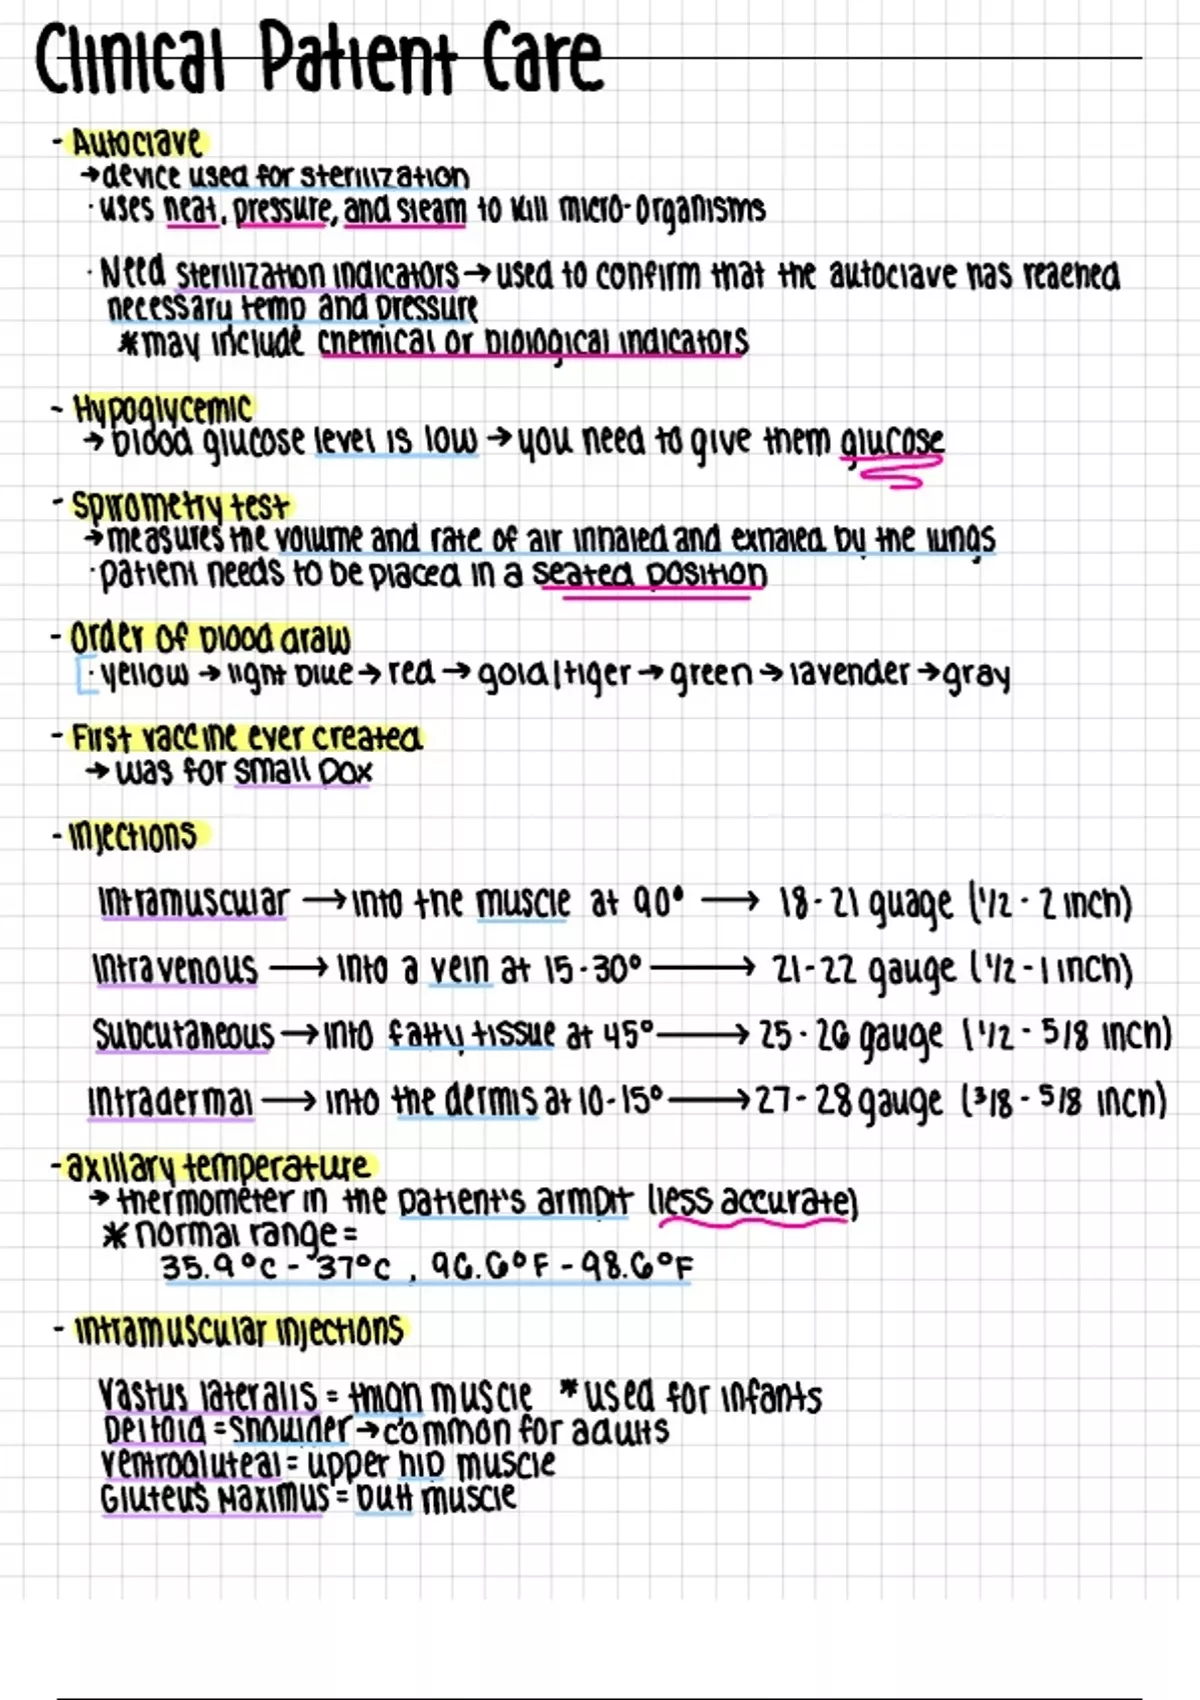 Clinical Patient Care
- Autoclave
→device used for sterilization
· uses heat, pressure, and steam to kill micro-organisms
· Need sterilization indicators → used to confirm that the autoclave has reached
necessary temp and pressure
*may include chemical or biological indicators
- Hypoglycemic
→ blood glucose level is low → you need to give them glucose
- Spirometry test
→measures the volume and rate of air inhaled and exhaled by the lungs
·patient needs to be placed in a seated position
- Order of blood draw
· yellow → light blue → red → gold/tiger → green → lavender → gray
- First vaccine ever created
→ was for small pox
- Injections
Intramuscular → into the muscle at 90° → 18-21 guage (1/2 - 2 inch)
Intravenous → into a vein at 15-30° → 21-22 gauge (1/2 - 1 inch)
Subcutaneous → into fatty tissue at 45° → 25-26 gauge (1/2 - 5/8 inch)
Intradermal → into the dermis at 10-15° → 27-28 gauge (3/8 - 5/8 inch)
- axillary temperature
→ thermometer in the patient's armpit (less accurate)
* normal range =
35.9°C - 37°C , 96.6°F - 98.6°F
- intramuscular injections
Vastus lateralis = thigh muscle *used for infants
Deltoid = shoulder → common for adults
Ventrogluteal = upper hip muscle
Gluteus Maximus = butt muscle